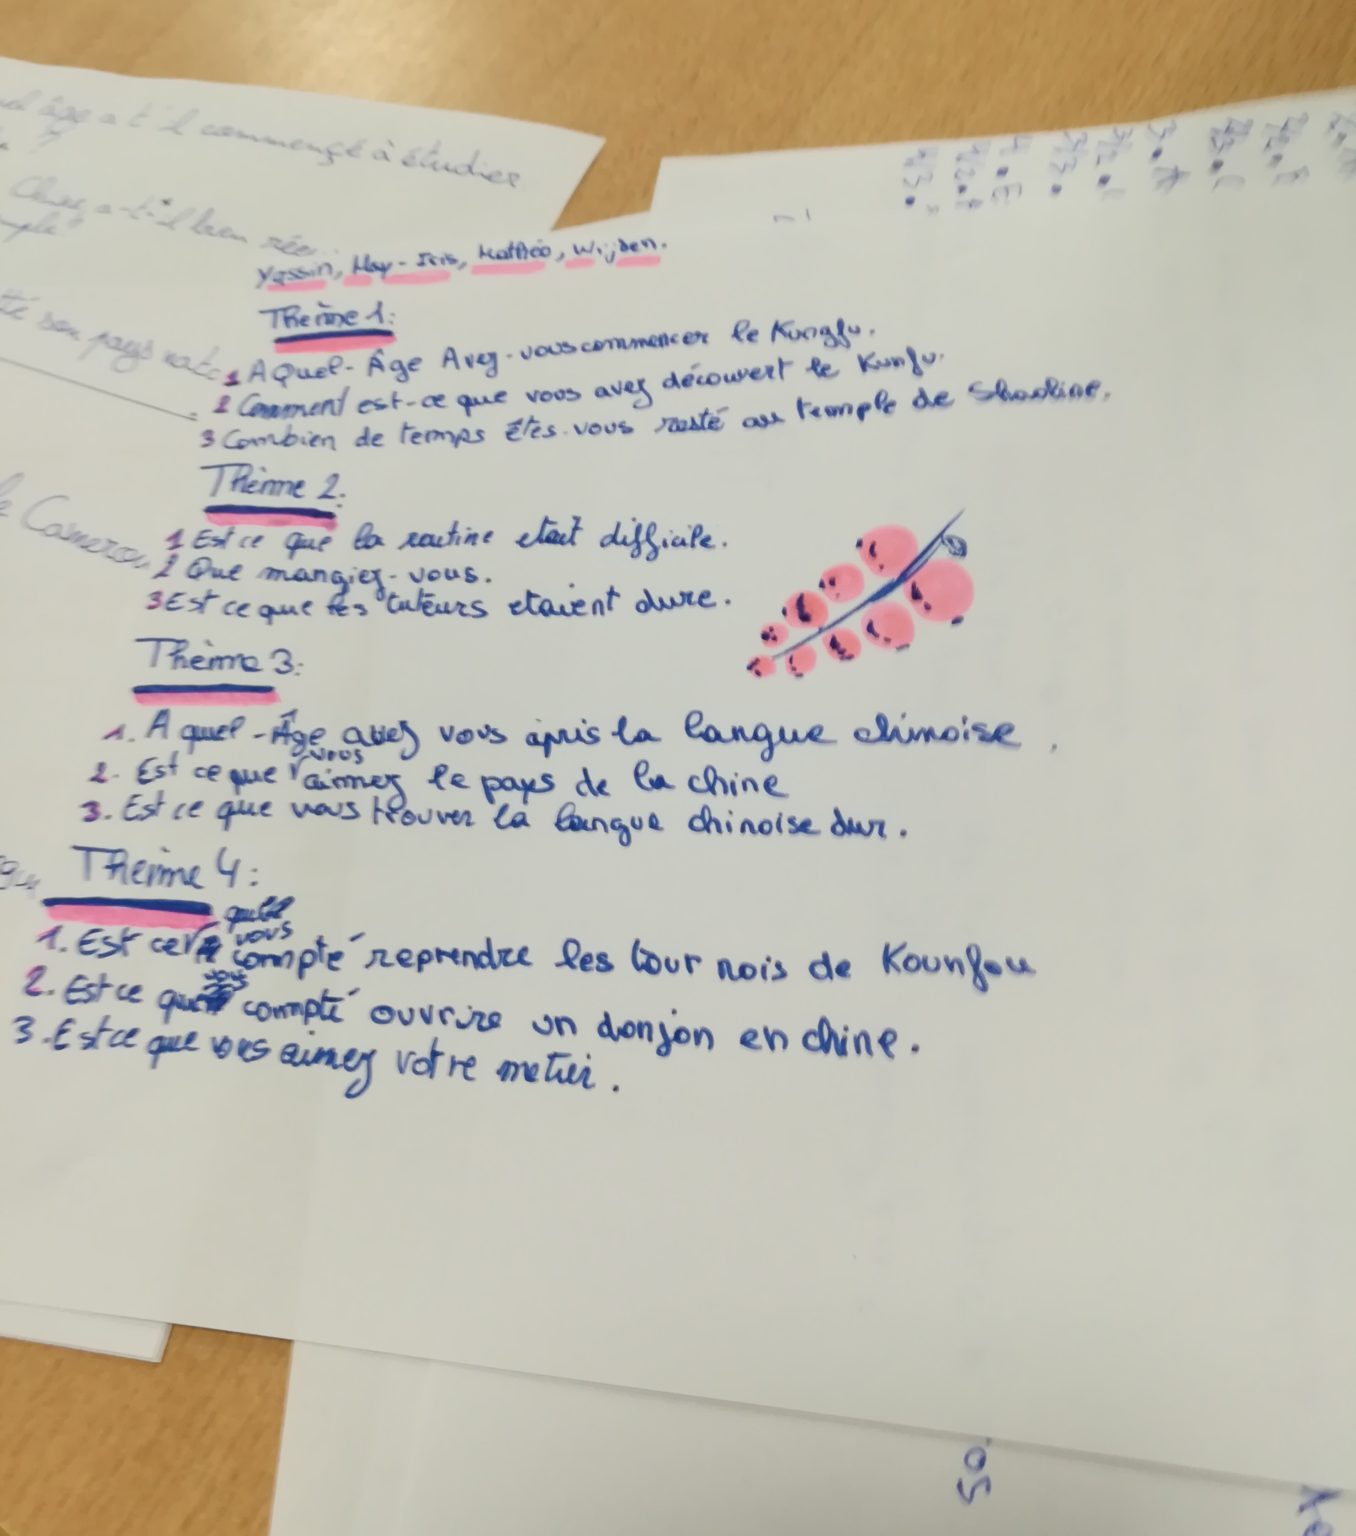 âge a t'il commencé à étudier
?
a-t-il bien
son pays
Cameroun
Yassin, May-Iris, Mathéo, Wijden.
Thème 1:
1 A Quel-Âge Avez-vous commencer le Kungfu.
2 Comment est-ce que vous avez découvert le Kunfu.
3 Combien de temps êtes-vous resté au temple de Shaoline.
Thème 2:
1 Est ce que la routine etait difficile.
2 Que mangiez-vous.
3 Est ce que les tuteurs etaient dure.
Thème 3:
1. A quel-Âge avez vous apris la langue chinoise.
2. Est ce que vous aimez le pays de la chine
3. Est ce que vous trouver la langue chinoise dur.
Thème 4:
1. Est ce que vous compté reprendre les tour nois de Kounfou
2. Est ce que vous compté ouvrire un donjon en chine.
3. Est ce que vous aimez votre metier.